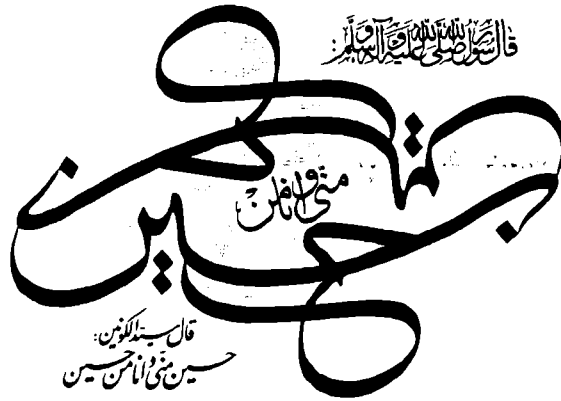 قال رسول الله صلی الله علیه وآله وسلم:
حسین
منی وانا من
قال سید الکونین:
حسین منی و انا من حسین